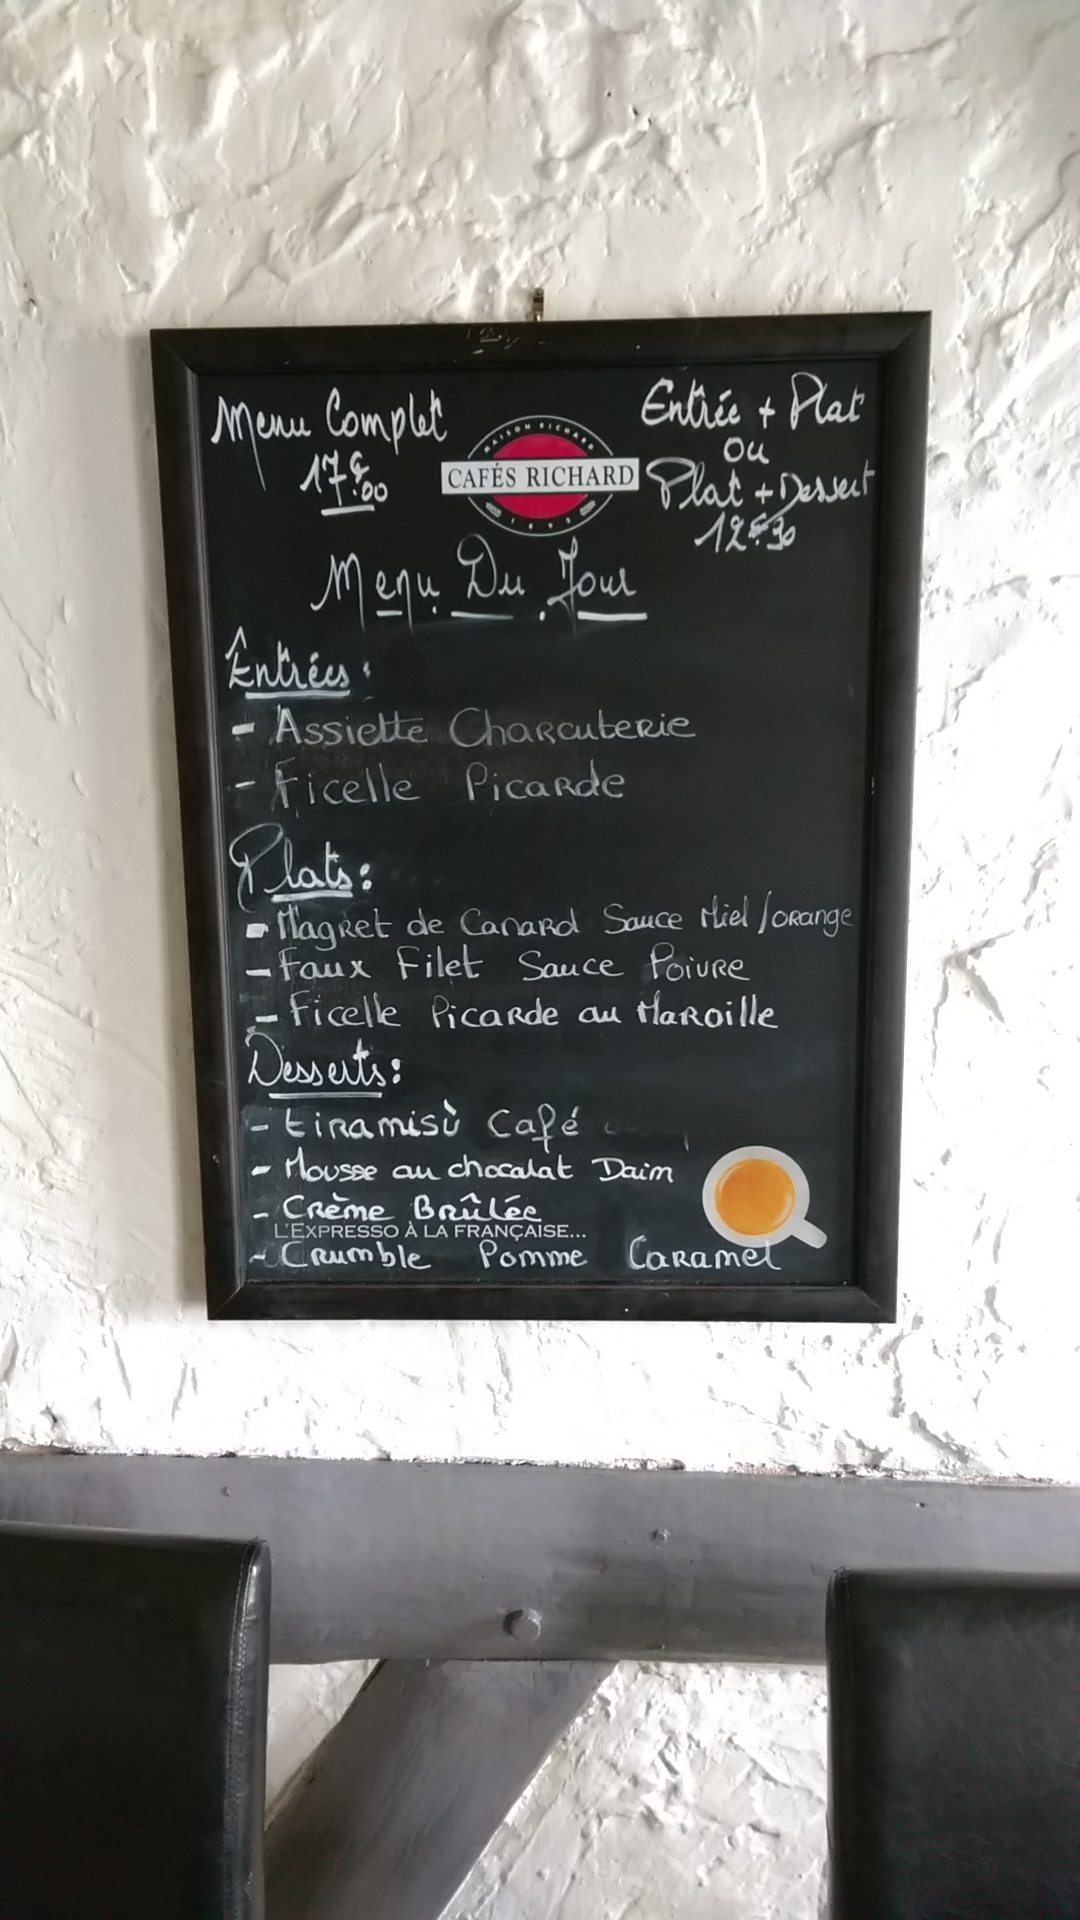 Menu Complet
17€.00
MAISON RICHARD
CAFÉS RICHARD
1892
Entrée + Plat
ou
Plat + Dessert
12€30
Menu Du Jour
Entrées :
- Assiette Charcuterie
- Ficelle Picarde
Plats :
- Magret de Canard Sauce Miel / orange
- Faux Filet Sauce Poivre
- Ficelle Picarde au Maroille
Desserts :
- tiramisù Café
- Mousse au chocolat Daim
- Crème Brûlée
L'EXPRESSO À LA FRANÇAISE...
- Crumble Pomme Caramel